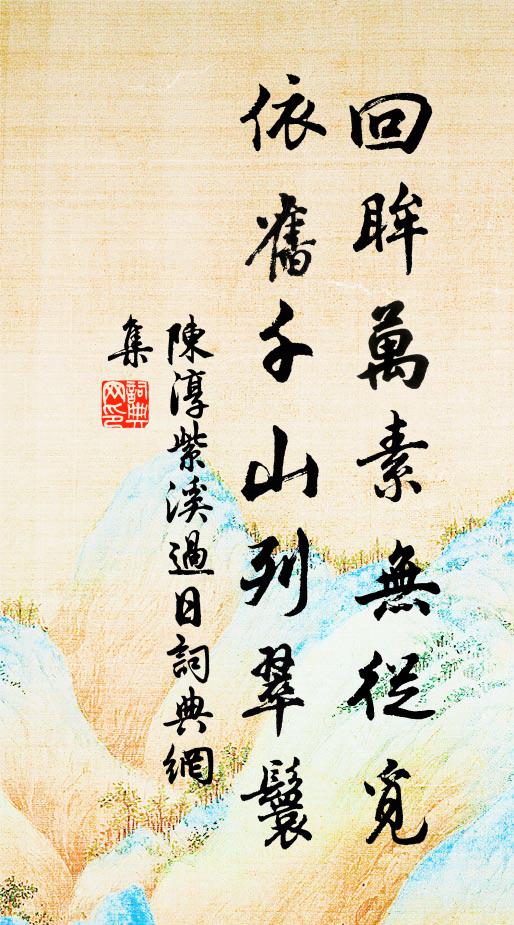 回眸萬素無從覓
依舊千山列翠鬟
陳淳紫溪過日詞典網
集
詞典網印